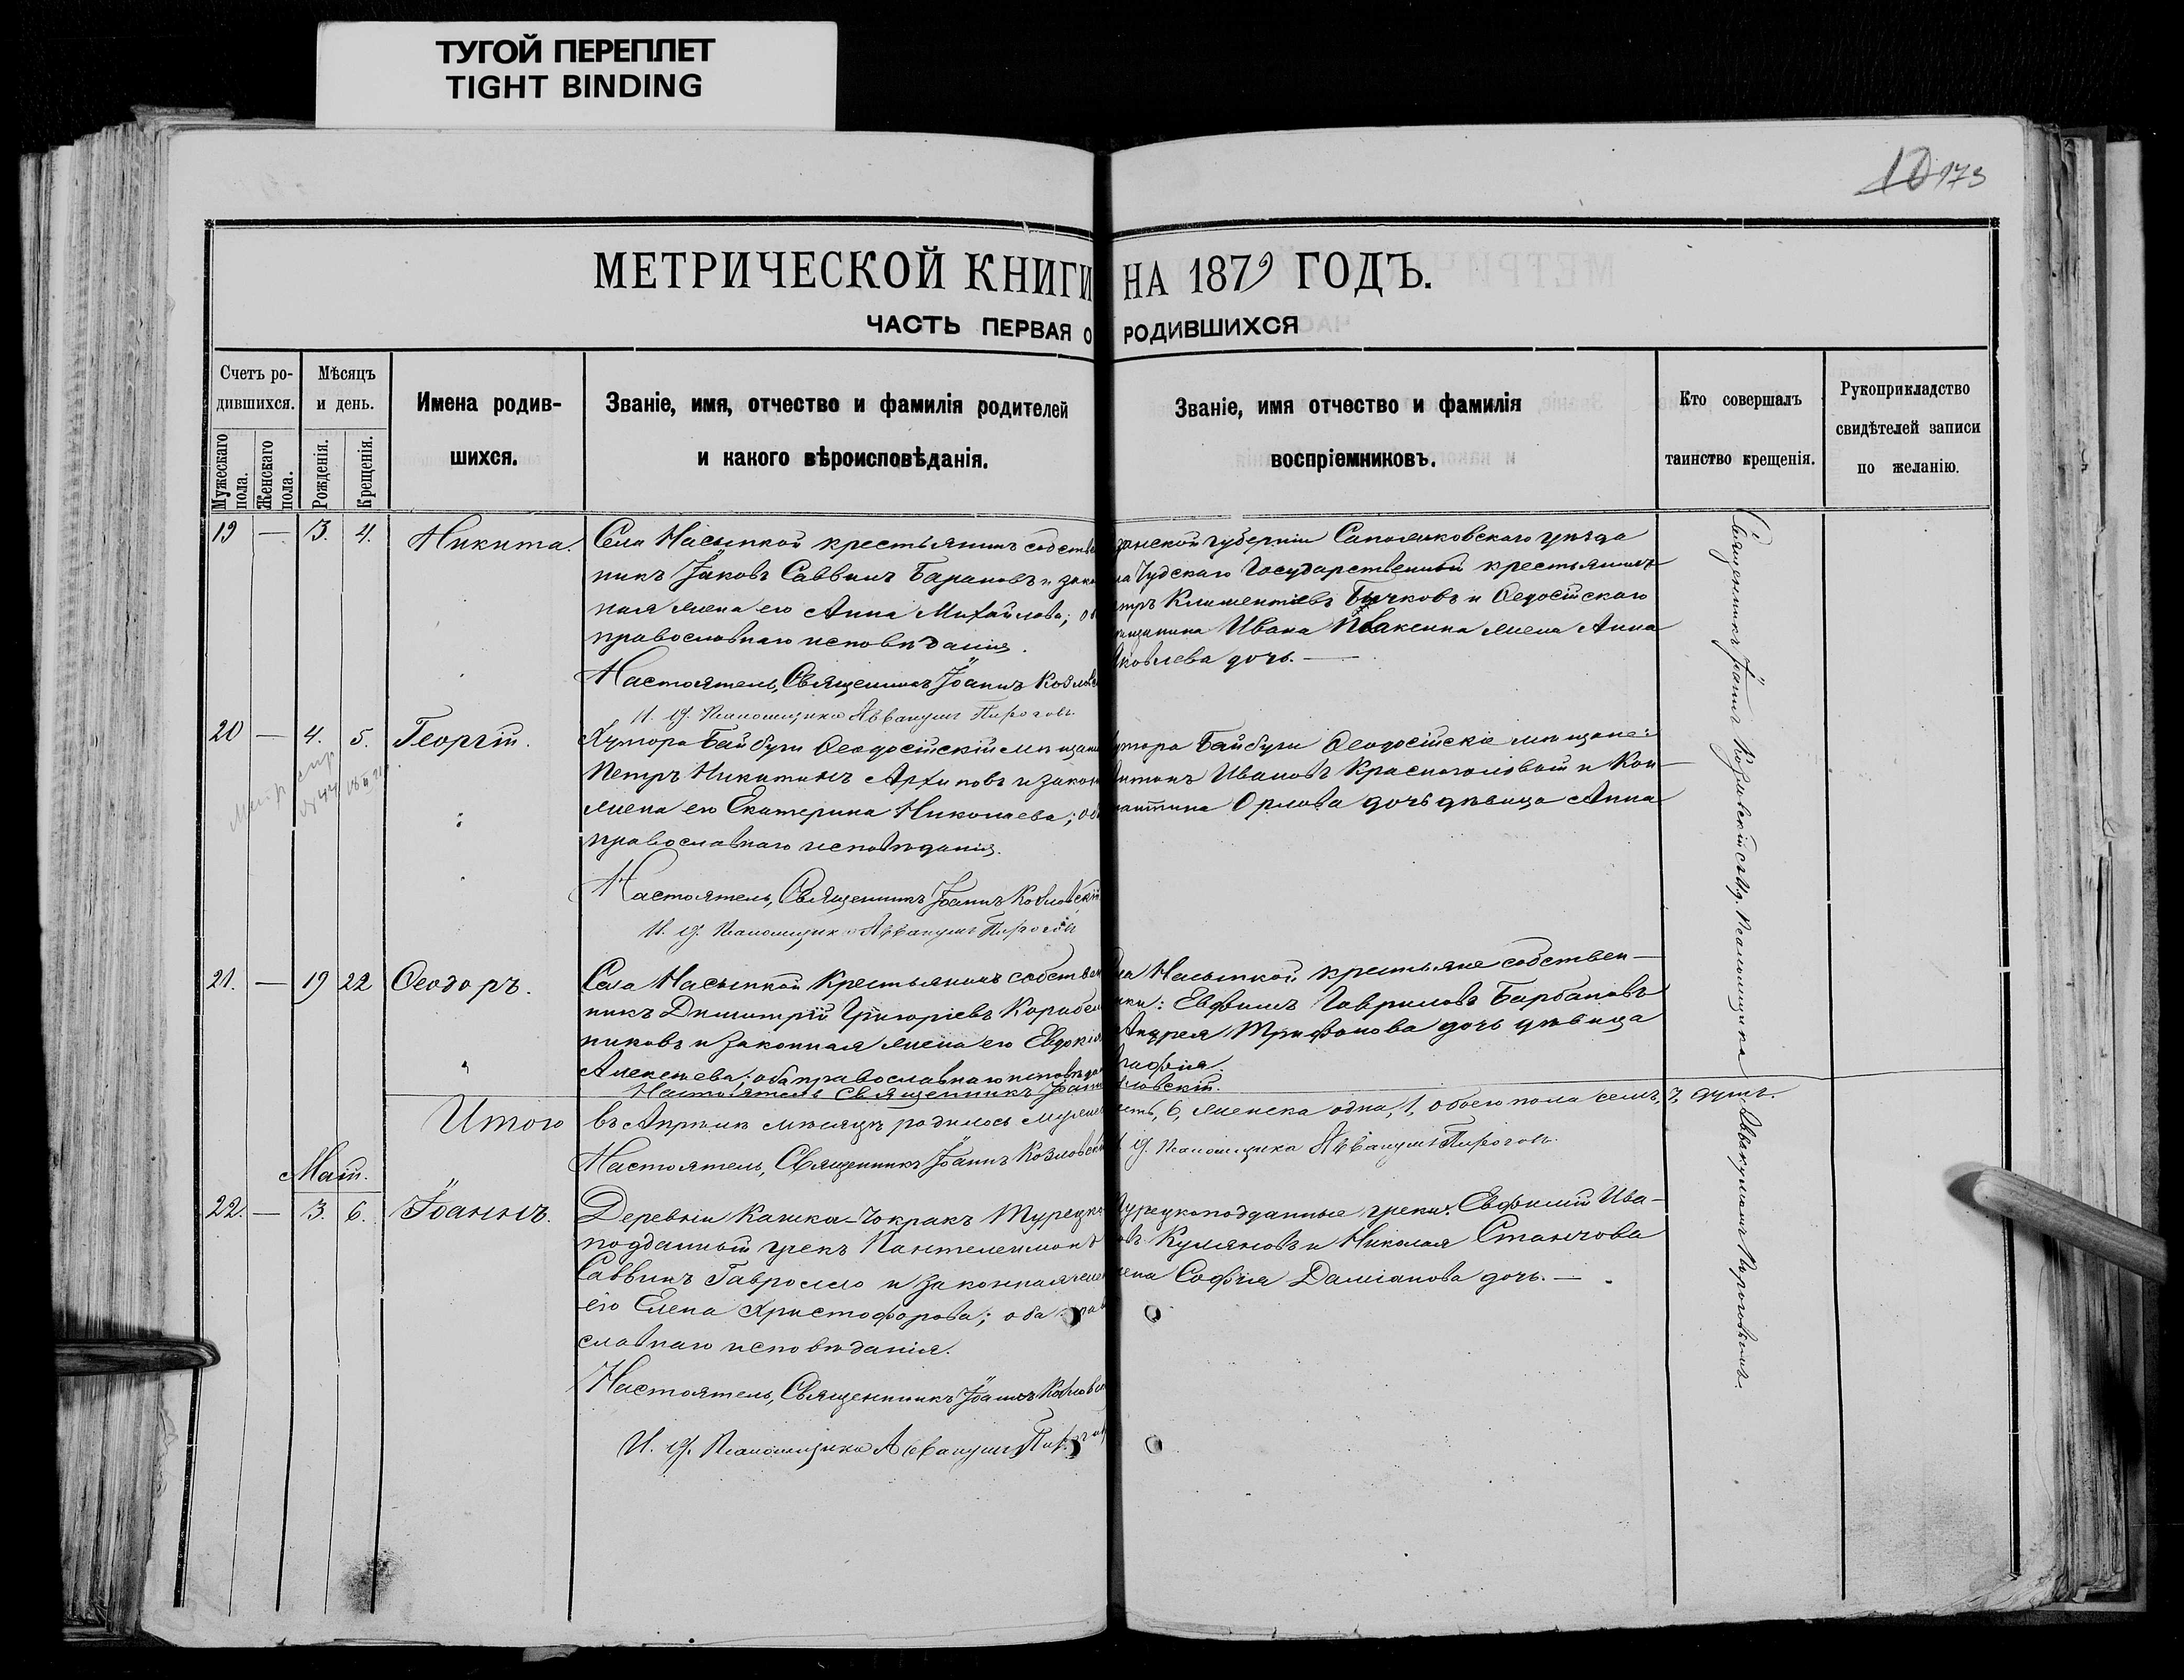 ТУГОЙ ПЕРЕПЛЕТ
TIGHT BINDING
10 173
МЕТРИЧЕСКОЙ КНИГИ НА 1879 ГОДЪ.
ЧАСТЬ ПЕРВАЯ О РОДИВШИХСЯ
Счетъ ро-
дившихся.
Мужескаго пола.
Женскаго пола.
Мѣсяцъ
и день.
Рожденія.
Крещенія.
Имена родив-
шихся.
Званіе, имя, отчество и фамилія родителей
и какого вѣроисповѣданія.
Званіе, имя отчество и фамилія
воспріемниковъ.
Кто совершалъ
таинство крещенія.
Рукоприкладство
свидѣтелей записи
по желанію.
19 — 3. 4. Никита.
Села Насыпкой крестьянинъ собстве
никъ Іаковъ Саввинъ Барановъ и зако
ная жена его Анна Михайлова; об
православнаго исповѣданія.
Настоятель, Священникъ Іоаннъ Козловс
И. д. Псаломщика Аввакумъ Пироговъ
занской губерніи Сапожковскаго уѣзда
ла Чудскаго Государственный крестьянинъ
етръ Климентіевъ Бычковъ и Ѳеодосійскаго
ѣщанина Ивана жена Анна
Яковлева дочь. —
20 — 4. 5. Георгій.
Хутора Байбуги Ѳеодосійскій мѣщани
Петръ Никитинъ Архиповъ и закон
жена его Екатерина Николаева; об
православнаго исповѣданія.
Настоятель, Священникъ Іоаннъ Козловскій
И. д. Псаломщика Аввакумъ Пироговъ
утора Байбуги Ѳеодосійскіе мѣщане:
Антонъ Ивановъ Красноголовый и Кон-
стантина Орлова дочь дѣвица Анна
21. — 19 22 Ѳеодоръ.
Села Насыпкой Крестьянинъ собствен
никъ Димитрій Григоріевъ Корабель
никовъ и законная жена его Евдокія
Алексѣева; оба православнаго исповѣдан
Настоятель Священникъ Іоаннъ Козловскій.
ла Насыпкой крестьяне собствен-
ики: Евфимъ Гавриловъ Барбановъ
Андрея Трифонова дочь дѣвица
Агафія.
Итого въ Апрѣлѣ мѣсяцѣ родилось мужеск шесть, 6, женска одна, 1, обоего пола семь, 7, душъ.
Настоятель, Священникъ Іоаннъ Козловскій И. д. Псаломщика Аввакумъ Пироговъ.
Май.
22. — 3. 6. Іоаннъ.
Деревни Кашка-Чокракъ Турецко
подданный грекъ Пантелеимонъ
Саввинъ Гавросло и законная жена
его Елена Христофорова; оба прав
славнаго исповѣданія.
Настоятель, Священникъ Іоаннъ Козловск
И. д. Псаломщика Аввакумъ Пирогов
Турецкоподданные греки: Евфимій Ива-
овъ Кумяновъ и Николая Станчова
жена Софія Даміанова дочь. —
Священникъ Іоаннъ Козловскій съ И. д. Псаломщика Аввакумомъ Пироговымъ.